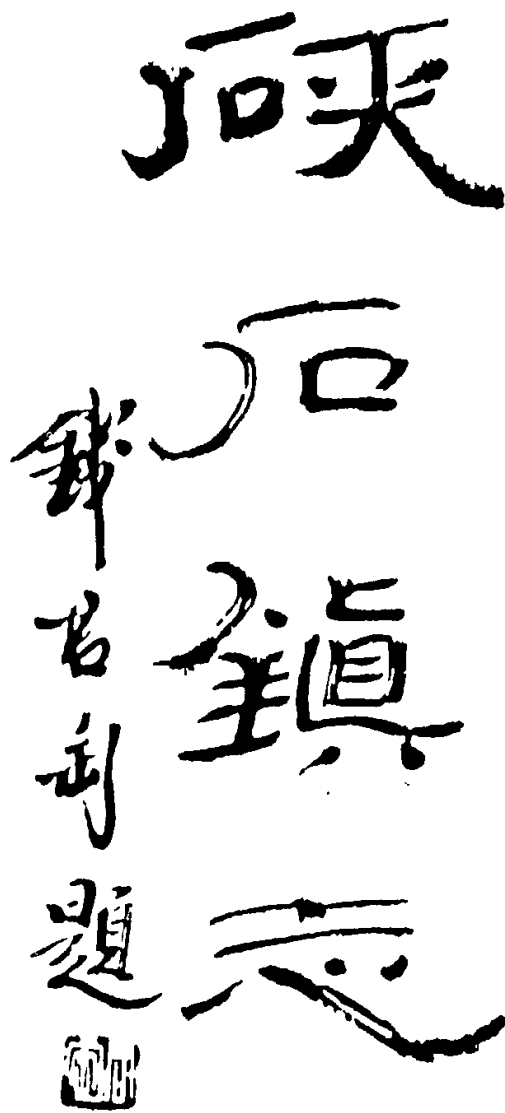 硤石鎮志
錢君匋題